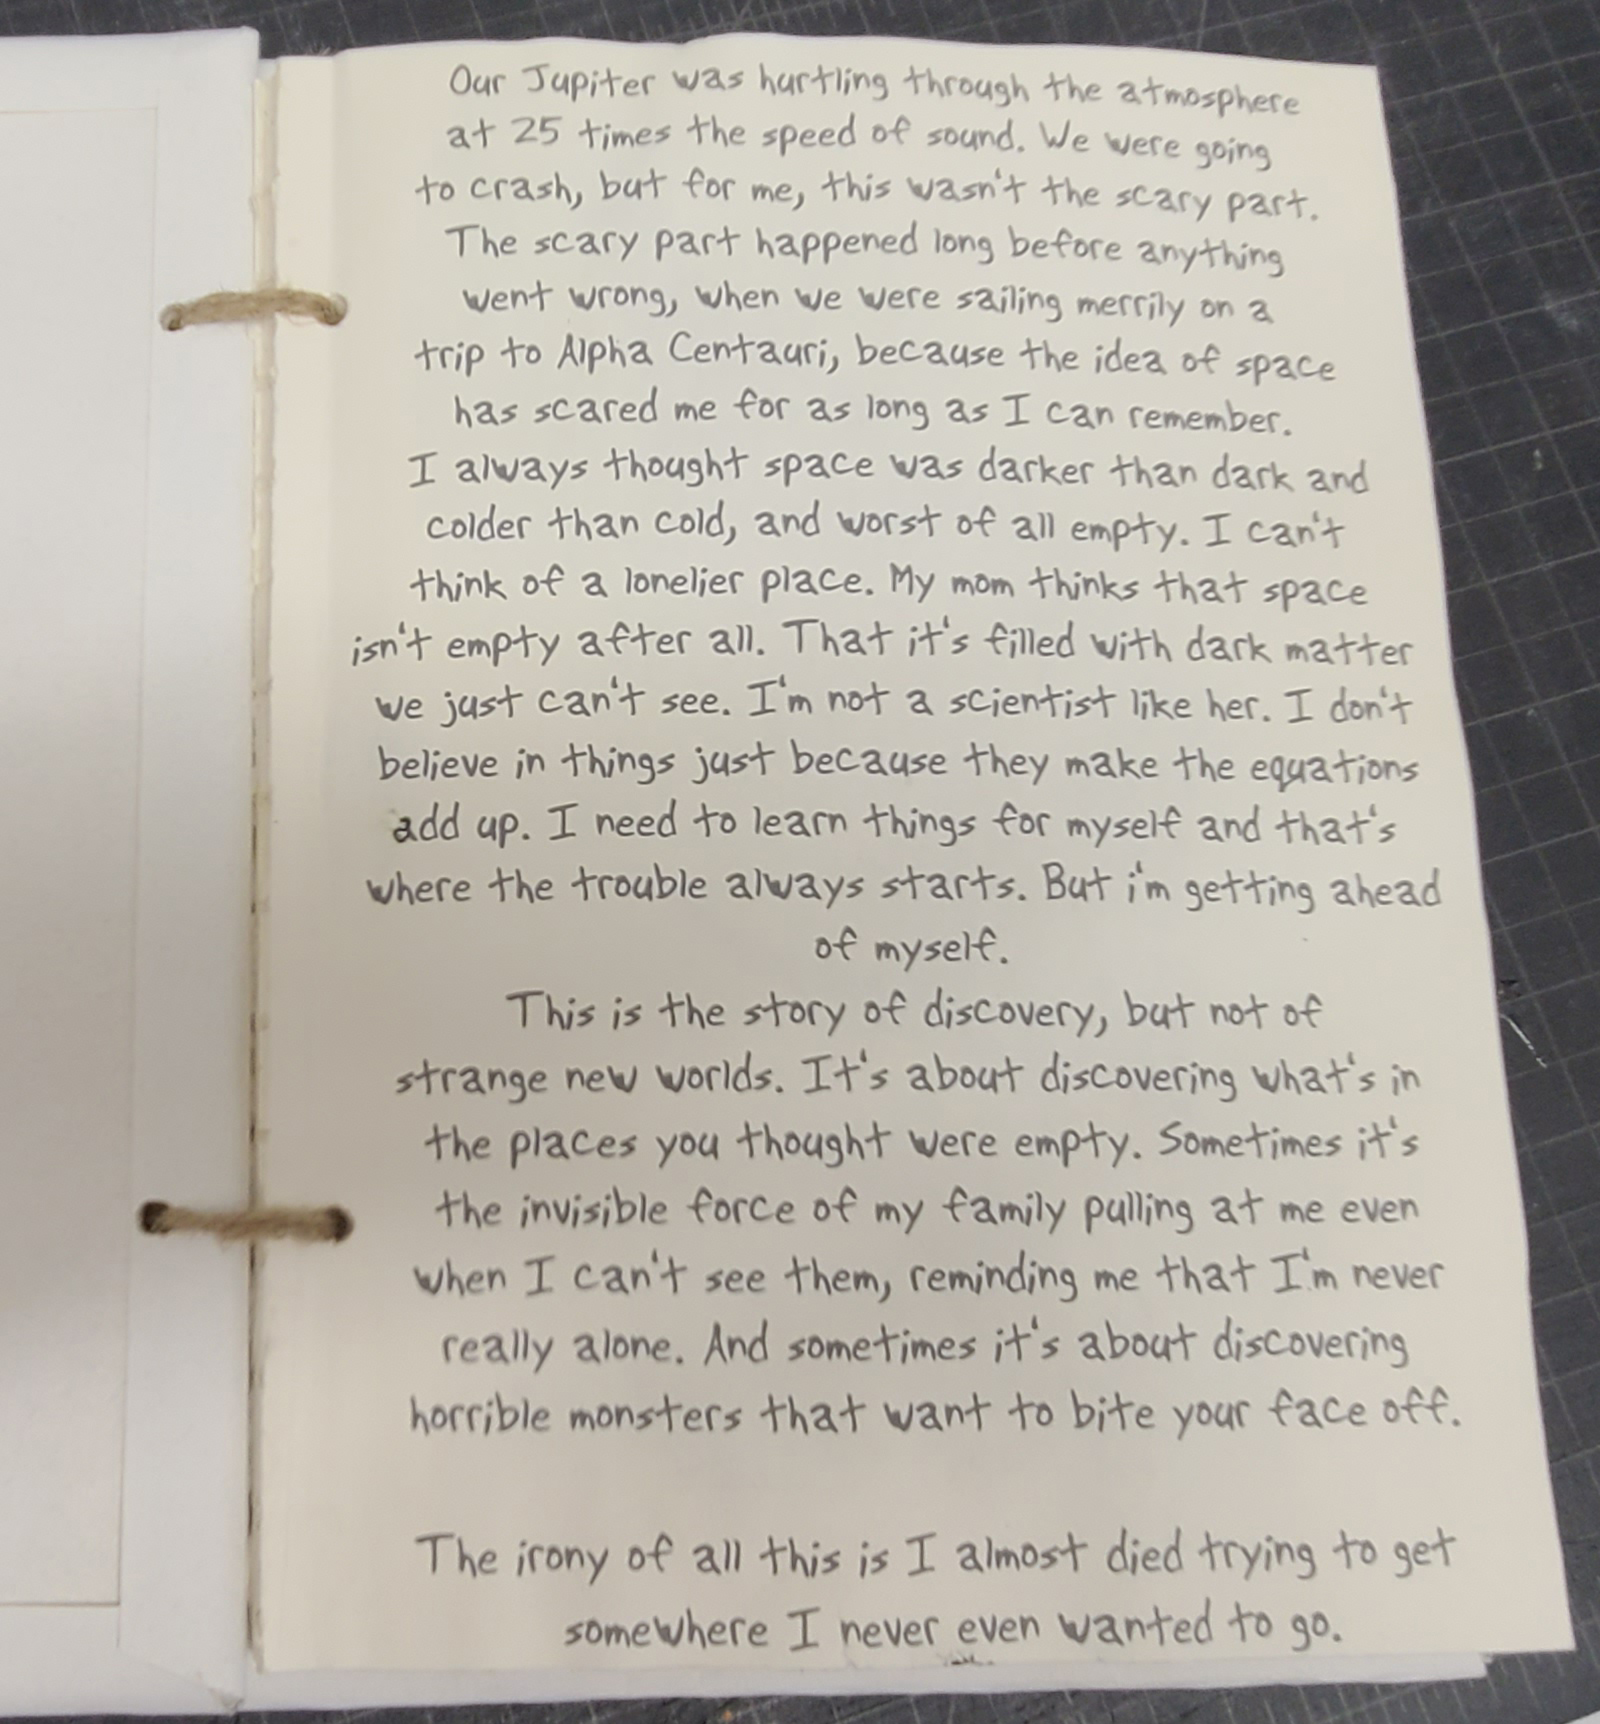 Our Jupiter was hurtling through the atmosphere
at 25 times the speed of sound. We were going
to crash, but for me, this wasn't the scary part.
The scary part happened long before anything
went wrong, when we were sailing merrily on a
trip to Alpha Centauri, because the idea of space
has scared me for as long as I can remember.
I always thought space was darker than dark and
colder than cold, and worst of all empty. I can't
think of a lonelier place. My mom thinks that space
isn't empty after all. That it's filled with dark matter
we just can't see. I'm not a scientist like her. I don't
believe in things just because they make the equations
add up. I need to learn things for myself and that's
where the trouble always starts. But i'm getting ahead
of myself.
This is the story of discovery, but not of
strange new worlds. It's about discovering what's in
the places you thought were empty. Sometimes it's
the invisible force of my family pulling at me even
when I can't see them, reminding me that I'm never
really alone. And sometimes it's about discovering
horrible monsters that want to bite your face off.
The irony of all this is I almost died trying to get
somewhere I never even wanted to go.